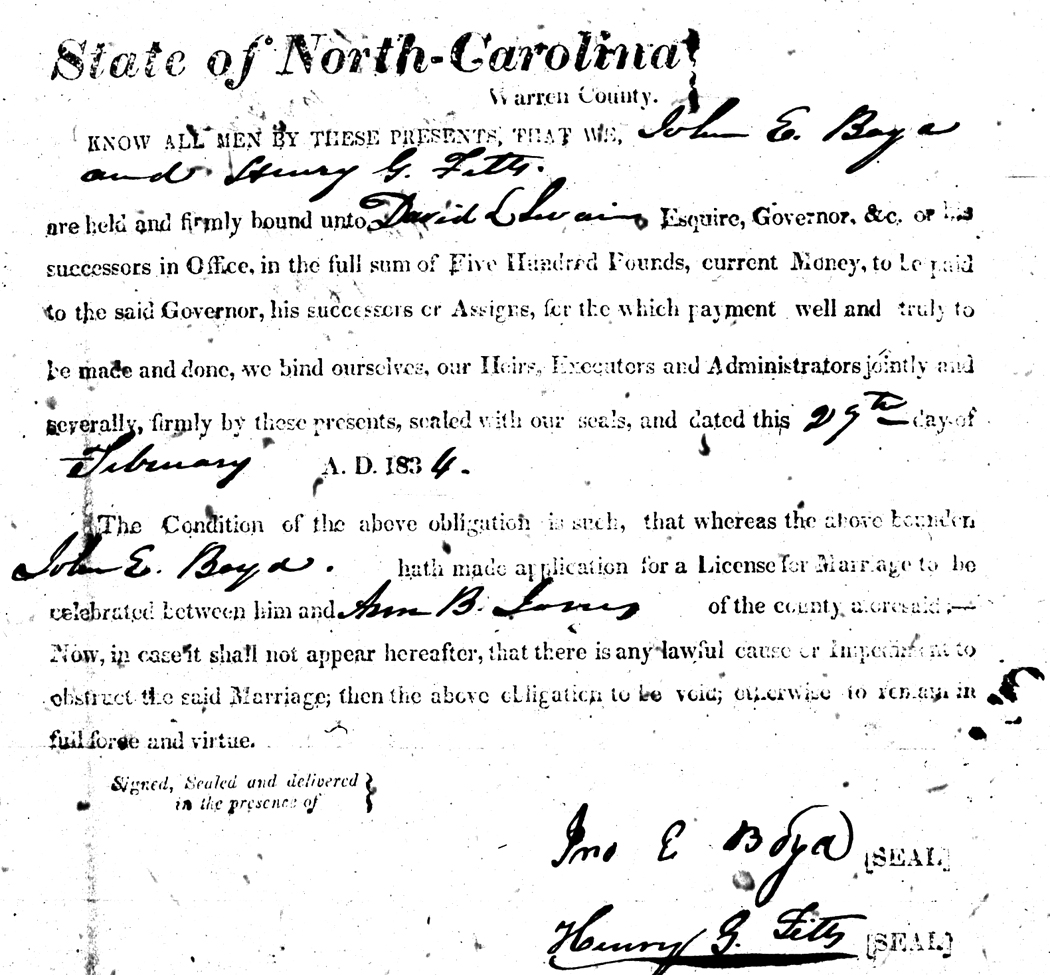 State of North-Carolina
Warren County.
KNOW ALL MEN BY THESE PRESENTS, THAT WE, John E. Boyd
and Henry G. Fitts.
are held and firmly bound unto David L Swain Esquire, Governor, &c. or his
successors in Office, in the full sum of Five Hundred Pounds, current Money, to be paid
to the said Governor, his successors or Assigns, for the which payment well and truly to
be made and done, we bind ourselves, our Heirs, Executors and Administrators jointly and
severally, firmly by these presents, sealed with our seals, and dated this 27th day of
February A. D. 1834.
The Condition of the above obligation is such, that whereas the above bounden
John E. Boyd. hath made application for a License for Marriage to be
celebrated between him and Ann B. Jones of the county aforesaid:—
Now, in case it shall not appear hereafter, that there is any lawful cause or Impediment to
obstruct the said Marriage; then the above obligation to be void; otherwise to remain in
full force and virtue.
Signed, Sealed and delivered
in the presence of
Jno E Boyd [SEAL]
Henry G. Fitts [SEAL]